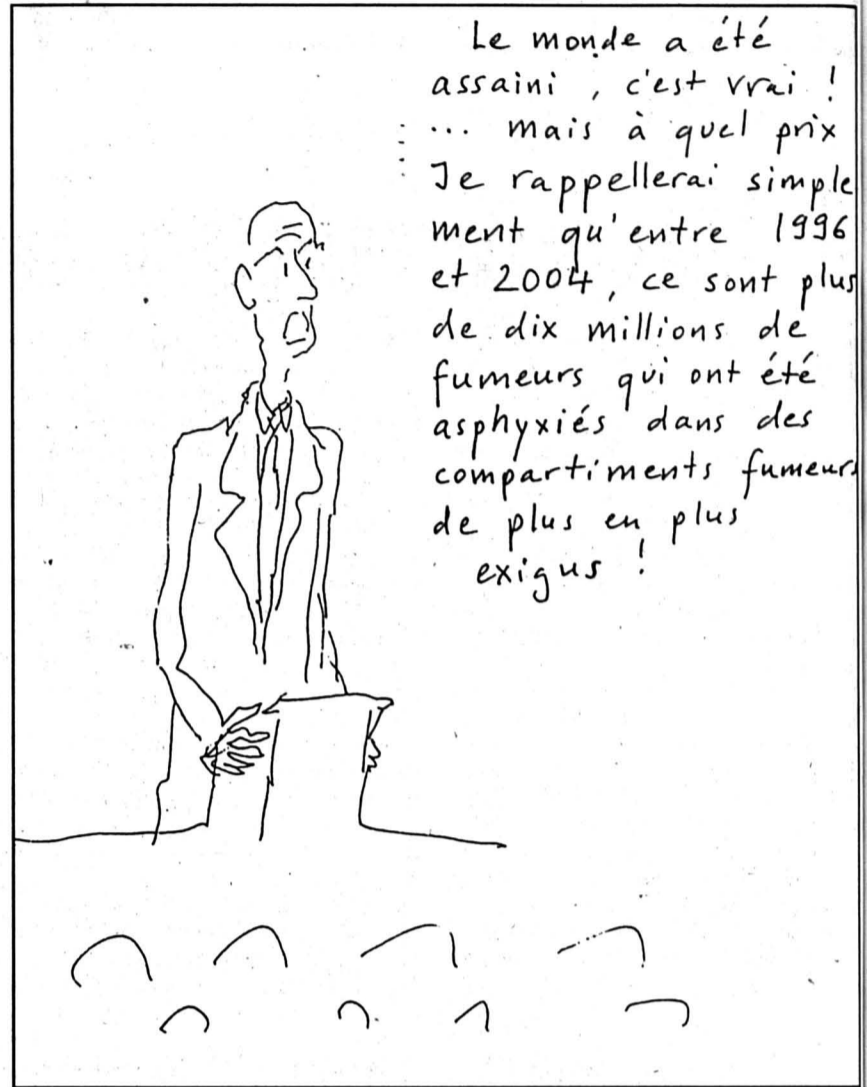 Le monde a été
assaini, c'est vrai !
... mais à quel prix
Je rappellerai simple
ment qu'entre 1996
et 2004, ce sont plus
de dix millions de
fumeurs qui ont été
asphyxiés dans des
compartiments fumeurs
de plus en plus
exigus !